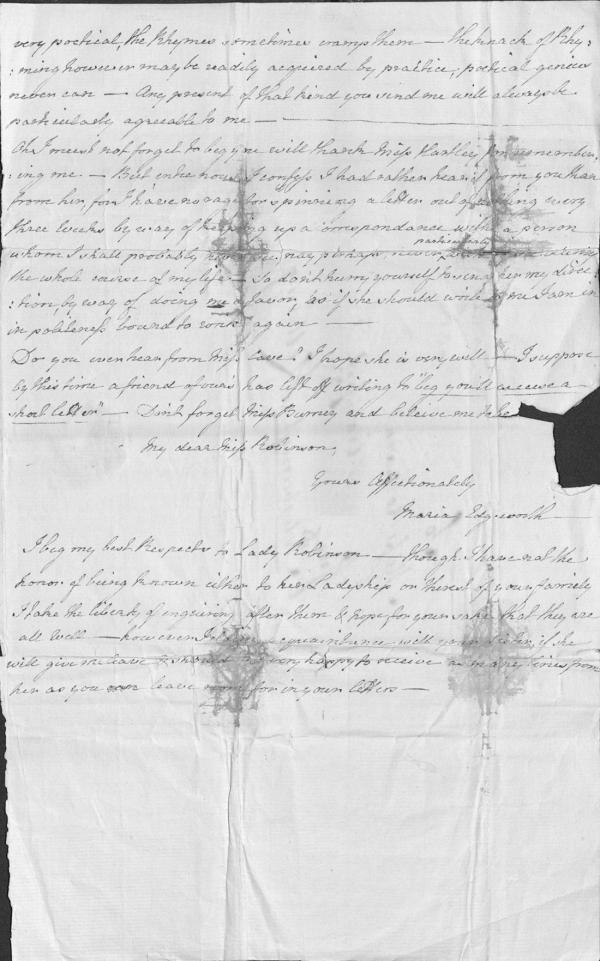 very poetical, the Rhymes sometimes cramp them — the knack of Rhy:
:ming however may be readily acquired by practice, poetical genius
never can — Any present of that kind you send me will always be
particularly agreeable to me —
Oh I must not forget to beg you will thank Miss Hartley for remember:
:ing me — But entre nous I confess I had rather hear from you than
from her, for I have no rage for spinning a letter out of nothing every
three weeks by way of keeping up a correspondance with a person
whom I shall probably nay perhaps, never
particularly
the whole course of my life — So don't hurry yourself to send her my direc
:tion by way of doing me a favor, as if she should write to me I am in
in politeness bound to write again —
Do you ever hear from Miss Cave? I hope she is very well — I suppose
by this time a friend of ours has left off writing to "beg you'll receive a
short letter" — Don't forget Miss Burney and beleive me to be
My dear Miss Robinson,
Yours Affectionately
Maria Edgworth
I beg my best Respects to Lady Robinson — though I have not the
honor of being known either to her Ladyship or the rest of your family
I take the liberty of enquiring after them & hope for your sake that they are
all well — however acquaintance with your sister, if she
will give me leave I should be very happy to receive as many lines from
her as you can leave room for in your letters —